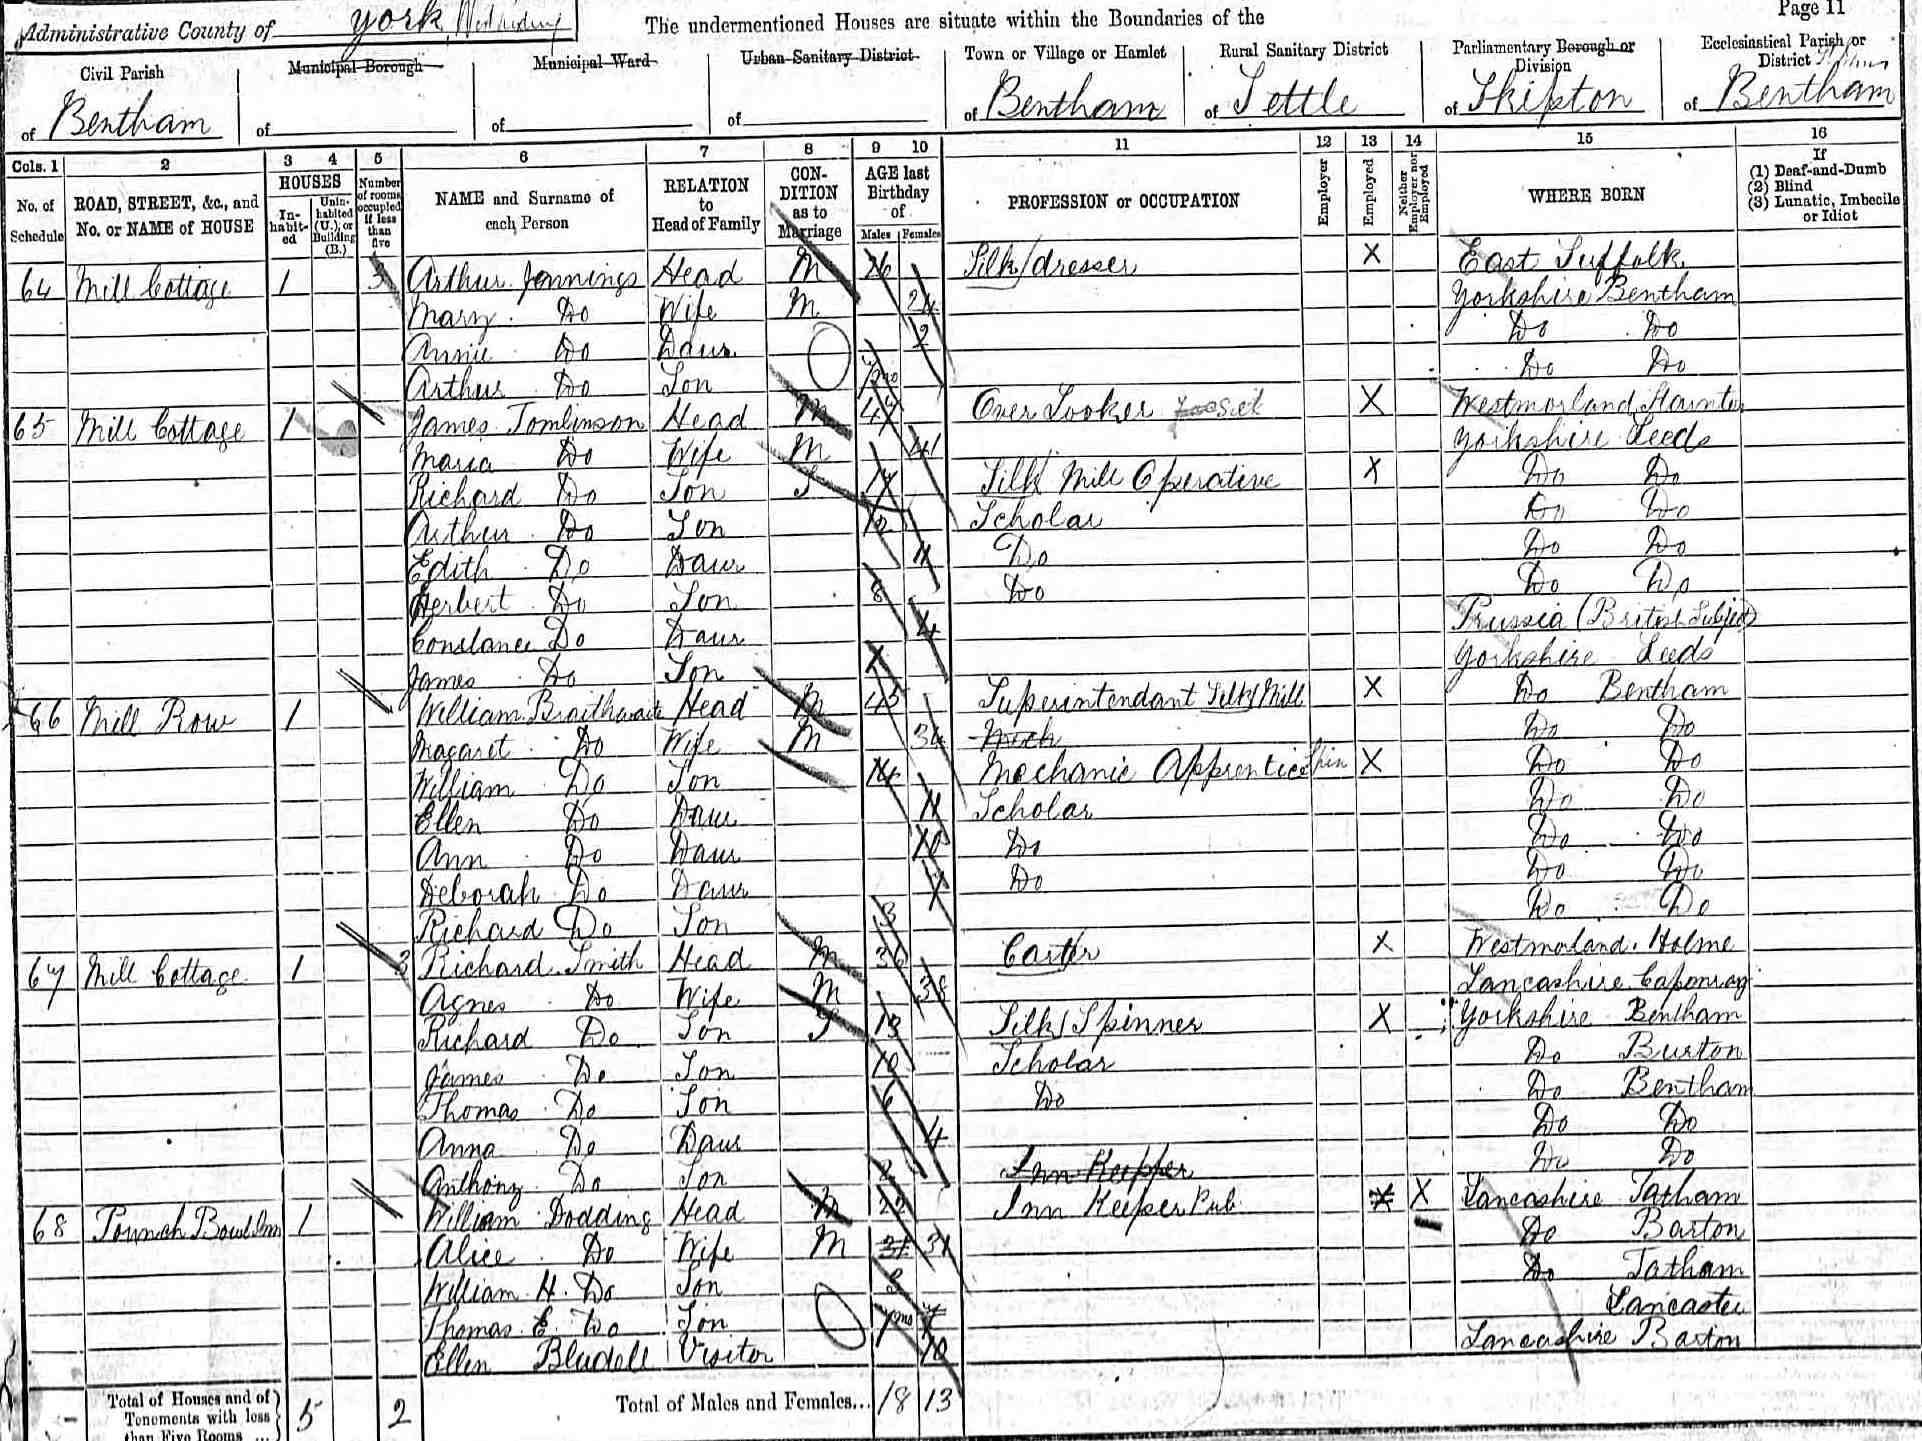 Administrative County of York, W Riding
The undermentioned Houses are situate within the Boundaries of the
Page 11
Civil Parish of Bentham
Municipal Borough of
Municipal Ward of
Urban Sanitary District of
Town or Village or Hamlet of Bentham
Rural Sanitary District of Settle
Parliamentary Borough or Division of Skipton
Ecclesiastical Parish or District of Bentham
Cols. 1 2 3 4 5 6 7 8 9 10 11 12 13 14 15 16
No. of Schedule
ROAD, STREET, &c., and No. or NAME of HOUSE
HOUSES
In-habit-ed
Unin-habited (U.), or Building (B.)
Number of rooms occupied if less than five
NAME and Surname of each Person
RELATION to Head of Family
CON-DITION as to Marriage
AGE last Birthday of
Males Females
PROFESSION or OCCUPATION
Employer
Employed
Neither Employer nor Employed
WHERE BORN
If
(1) Deaf-and-Dumb
(2) Blind
(3) Lunatic, Imbecile or Idiot
64 Mill Cottage 1 3 Arthur Jennings Head M 26 Silk/dresser X East Suffolk
Mary Do Wife M 24 Yorkshire Bentham
Annie Do Daur 2 Do Do
Arthur Do Son mo Do Do
65 Mill Cottage 1 James Tomlinson Head M 47 Over Looker X Westmorland
Maria Do Wife M 41 Yorkshire Leeds
Richard Do Son S 17 Silk/ Mill Operative X Do Do
Arthur Do Son 12 Scholar Do Do
Edith Do Daur 11 Do Do Do
Herbert Do Son 8 Do Do Do
Constance Do Daur 4 Prussia (British Subject)
James Do Son 1 Yorkshire Leeds
66 Mill Row 1 William Braithwaite Head M 45 Superintendant Silk/Mill X Do Bentham
Magaret Do Wife M 36 Mech Do Do
William Do Son 14 Mechanic Apprentice Spin X Do Do
Ellen Do Daur 11 Scholar Do Do
Ann Do Daur 10 Do Do Do
Deborah Do Daur 7 Do Do Do
Richard Do Son 3 Do Do
67 Mill Cottage 1 3 Richard Smith Head M 36 Carter X Westmorland Holme
Agnes Do Wife M 38 Lancashire Caponray
Richard Do Son S 13 Silk/Spinner X Yorkshire Bentham
James Do Son 10 Scholar Do Burton
Thomas Do Son 6 Do Do Bentham
Anna Do Daur 4 Do Do
Anthony Do Son 2 Inn Keepper Do Do
68 Pounch Bowl Inn 1 William Dodding Head M 22 Inn Keeper Pub. X X Lancashire Tatham
Alice Do Wife M 31 31 Do Barton
William H. Do Son 3 Do Tatham
Thomas E. Do Son 7mo 7 Lancaster
Ellen Bludell Visitor 10 Lancashire Barton
Total of Houses and of Tenements with less than Five Rooms ... 5 2
Total of Males and Females... 18 13